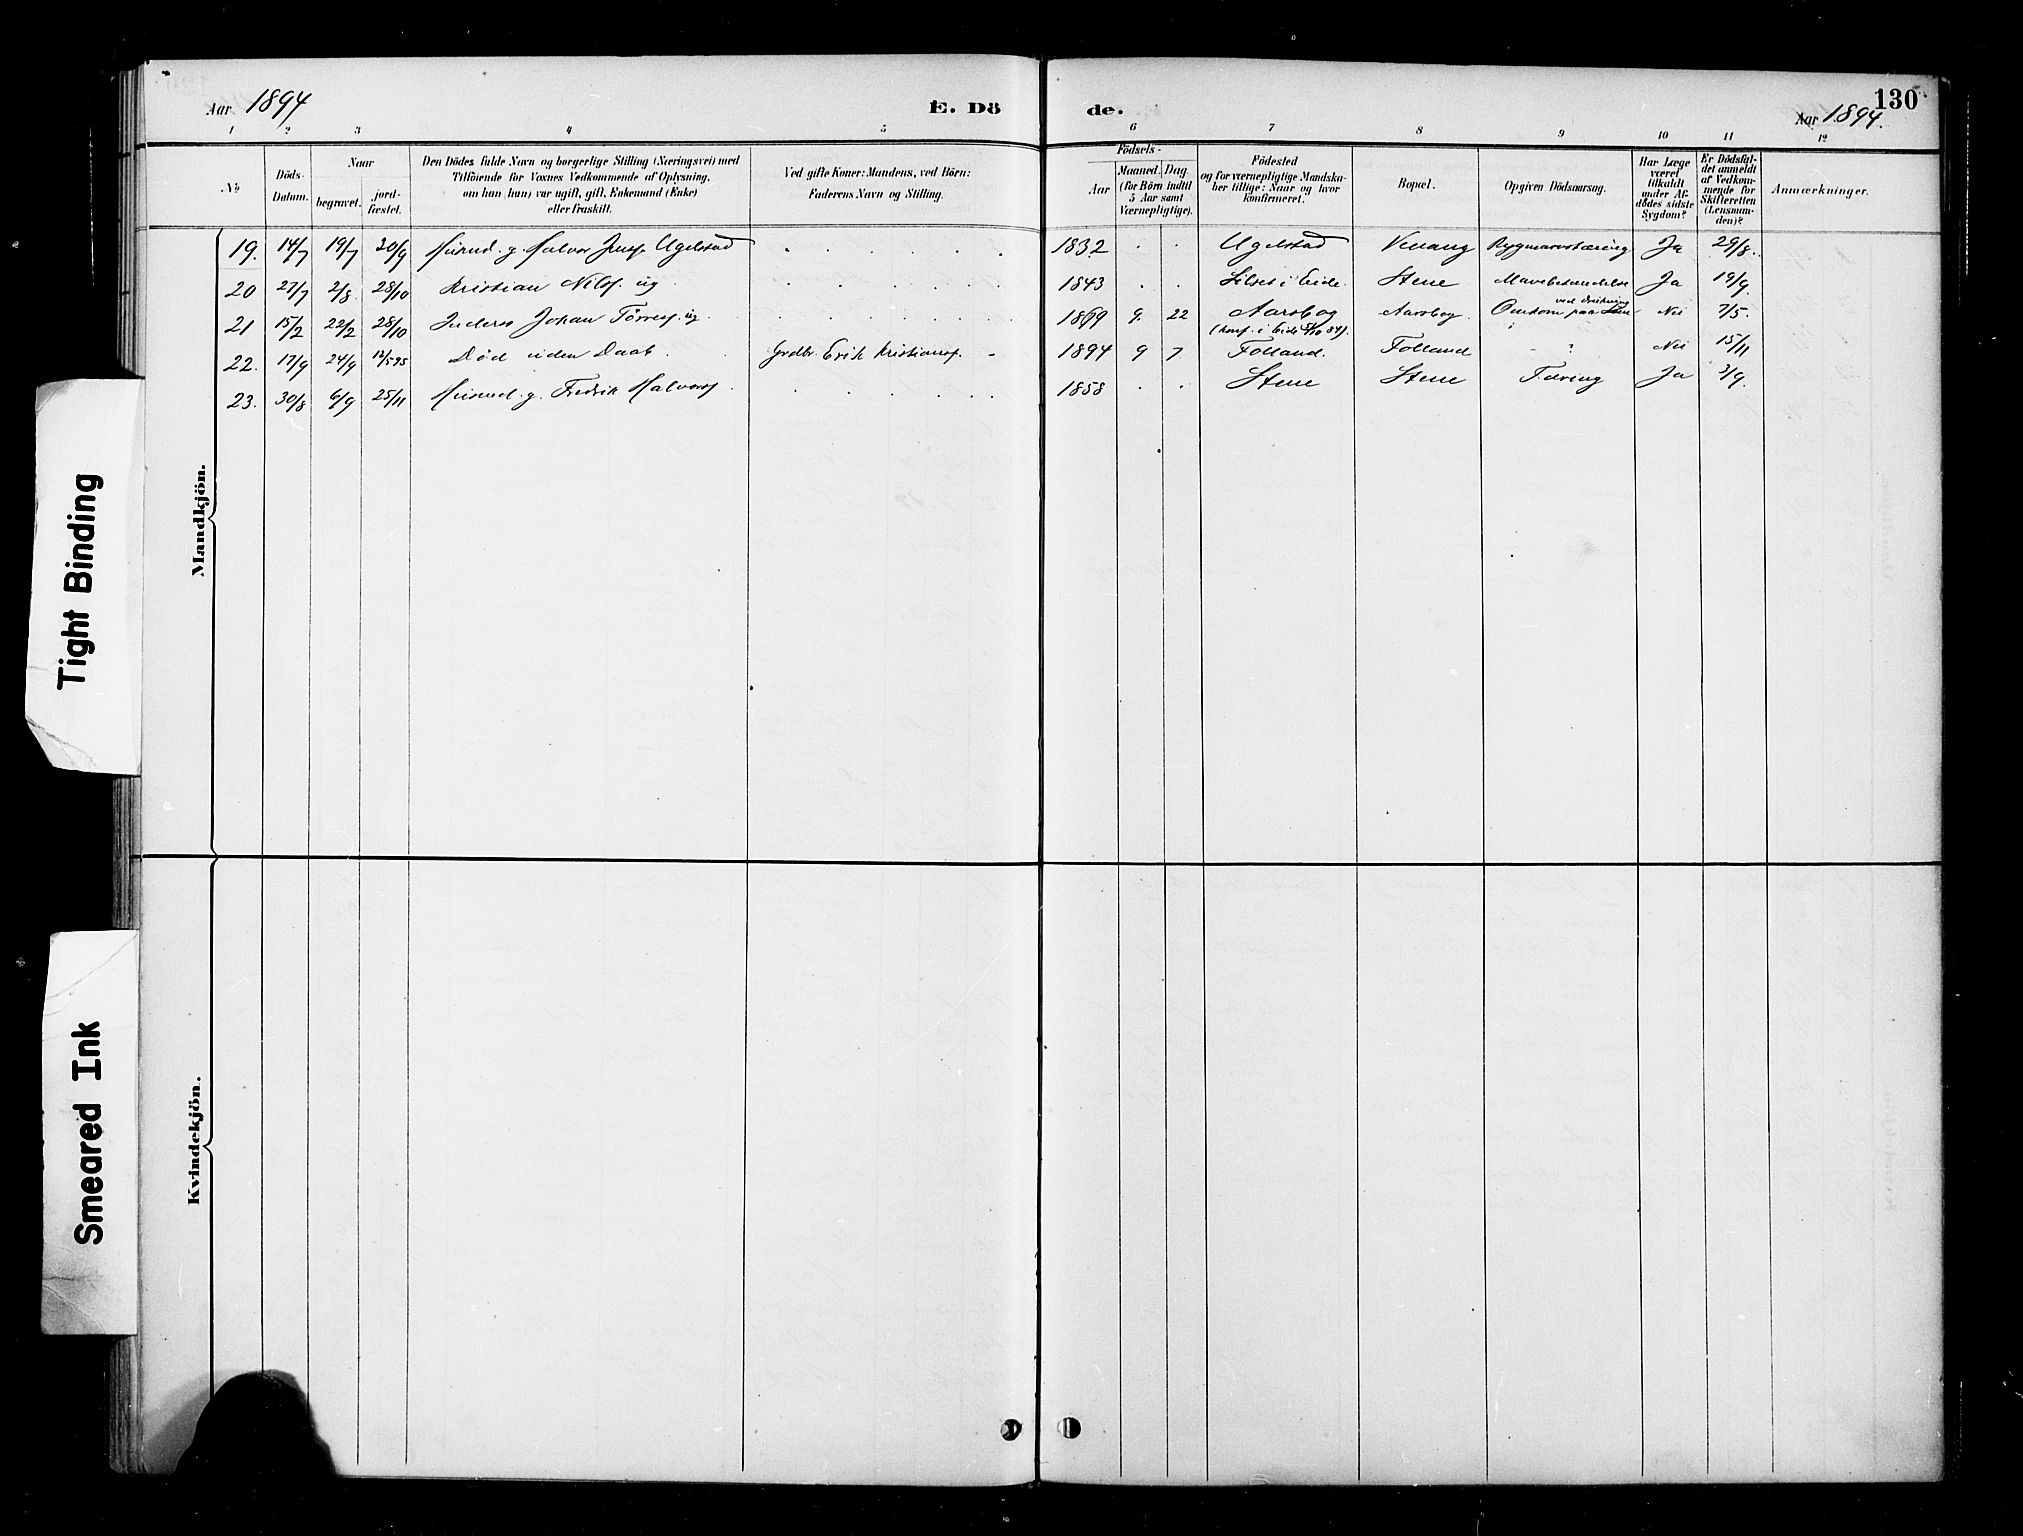 130
Aar 1894
E. Dö
de.
Aar 1894.
1 2 3 4 5 6 7 8 9 10 11 12
№
Döds-
Datum.
Naar
begravet.
jord-
fæstet.
Den Dödes fulde Navn og borgerlige Stilling (Næringsvei) med
Tilföiende for Voxnes Vedkommende af Oplysning,
om han (hun) var ugift, gift, Enkemand (Enke)
eller fraskilt.
Ved gifte Koner: Mandens, ved Börn:
Faderens Navn og Stilling.
Födsels-
Aar
Maaned. Dag
(for Börn indtil
5 Aar samt
Værnepligtige).
Födested
og for værnepligtige Mandska-
ber tillige: Naar og hvor
konfirmeret.
Bopæl.
Opgiven Dödsaarsag.
Har Læge
været
tilkaldt
under Af-
dödes sidste
Sygdom?
Er Dödsfal-
det anmeldt
af Vedkom-
mende for
Skifteretten
(Lensman-
den)?
Anmærkninger.
19. 14/7 19/7 30/9 g. Halvor Jenss. Ugelstad 1832 Ugelstad Rygmarvstæring Ja 29/8.
20 27/7 2/8 28/10 Kristian Nilss. ug 1843 i Eide. Stene Ja 19/9.
21 15/2 22/2 28/10 Anders Johan Tørress. ug 1869 9. 22 Aarsbog Aarsbog. Omkom paa Nei 7/5.
(konf. i Eide 5/10 84).
22. 17/9 24/9 12/5 95 Død uden Daab. Grdbr. Erik Kristianss. 1894 9 7 Folland. Folland - ? Nei 15/11
23. 30/8 6/9 25/11 g. Fredrik Halvorss. 1858 Stene Stene Tæring Ja 3/9.
Mandkjön.
Kvindekjön.
Tight Binding
Smeared Ink